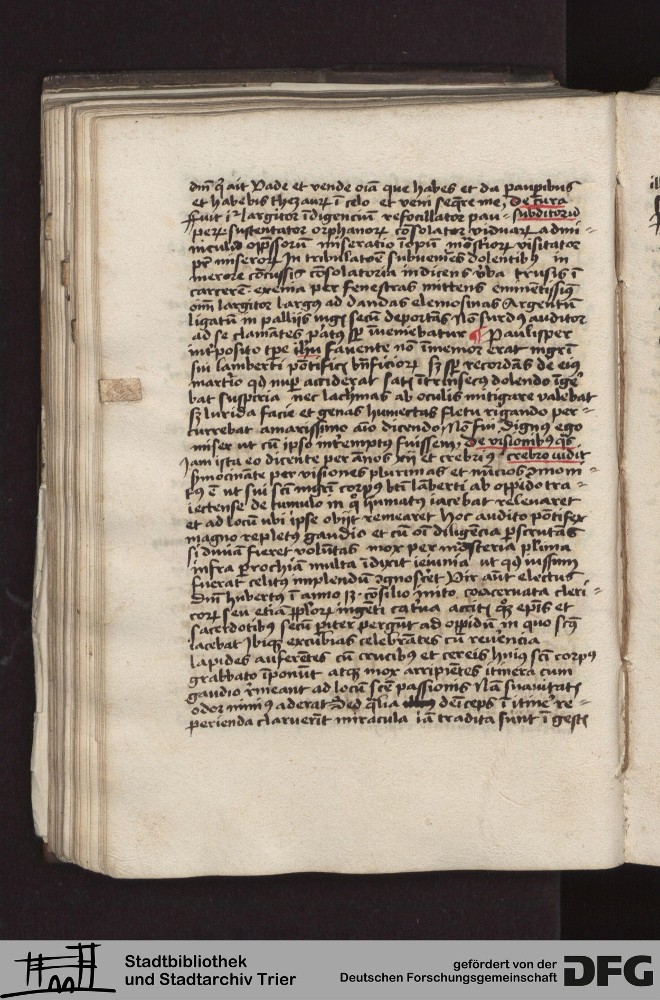 dm̄ q̄ ait Vade et vende oīa que habes et da pauperibus
et habebis thezaurū ī celo et veni seq̄re me, de cura
Fuit igr̄ largitor īdigencium refocillator pau- subditorū
perū sustentator orphanorū cōsolator viduarū admi-
niculū opp̄ssorū miseratio īopū mōstiorū visitator
In tribulatōe subueniēs dolentibꝰ in
merore cōcussis cōsolatoria indicens v̄ba trusis ī
carcere exenia per fenestras mittens eminētissiꝰ
oīm largitor largꝰ ad dandas elemosinas Argentū
ligatū in pallijs secū deportās Nō surdꝰ auditor
ad se clamātes patꝰ sp̄ īueniebatur ¶ Paulisper
int̄posito tp̄e ih̄u fauente nō īmemor erat mgr̄i
sui lamberti pōtificis bn̄ficiorū sꝫ sp̄ recordās de eiꝰ
martirio qd̄ nup̄ acciderat satis ītrinsecꝰ dolendo īge
bat suspiria nec lachrīas ab oculis mitigare valebat
sꝫ lurida facie et genas humectas fletu rigando per-
currebat amarissimo aīo dicendo Nō fui dignꝰ ego
miser ut cū ipso int̄emptꝰ fuissem, de visionibꝰ qs̄
Jam ista eo dicente per ānos xij et crebriꝰ crebro vidit
ꝯmonente per visiones plurimas et nūcios ꝯmoni-
tꝰ ē ut sui sc̄i mgr̄i corpꝰ bt̄i lāberti ab opido tra-
iectense de tumulo in q̄ humatꝰ iacebat releuaret
et ad locū ubi ipse obijt remearet Hoc audito pōtifex
magno repletꝰ gaudio et cū oī diligēcia p̄scrutās
si diuīa fieret volūtas mox per mōsteria pl̄ima
infra p̄rochiam multa īdixit ieiunia ut qd̄ iussum
fuerat celitus implendū ꝯgnosc̄et Vir aūt electus
dm̄ hubertꝰ ī anno 13 cōsilio inito coaceruata cleri-
corū seu etiā pplorū ingēti cat̄ua accitis qꝫ ep̄is et
sacerdotibꝰ secū p̄iter pergūt ad opidū in quo sc̄ꝰ
iacebat Ibiqꝫ excubias celebrātes cū reuēncia
lapides auferētes cū crucibꝰ et cereis huiꝰ sc̄i corpꝰ
grabbato īponūt atqꝫ mox arripiētes itinera cum
gaudio r̄meant ad locū sc̄e passionis Nā suauitatis
odor nimiꝰ aderat Sed q̄lia deīceps ī itine re-
perienda claruerīt miracula iā tradita sunt ī gestis
Stadtbibliothek
und Stadtarchiv Trier
gefördert von der
Deutschen Forschungsgemeinschaft
DFG